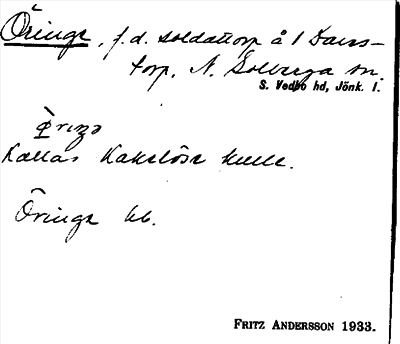 Öringe, f.d. soldattorp å 1 Dans-
torp, N. Solberga sn.
S. Vedbo hd, Jönk. l.
Kallas Kakelösa kulle.
Öringe kb.
FRITZ ANDERSSON 1933.